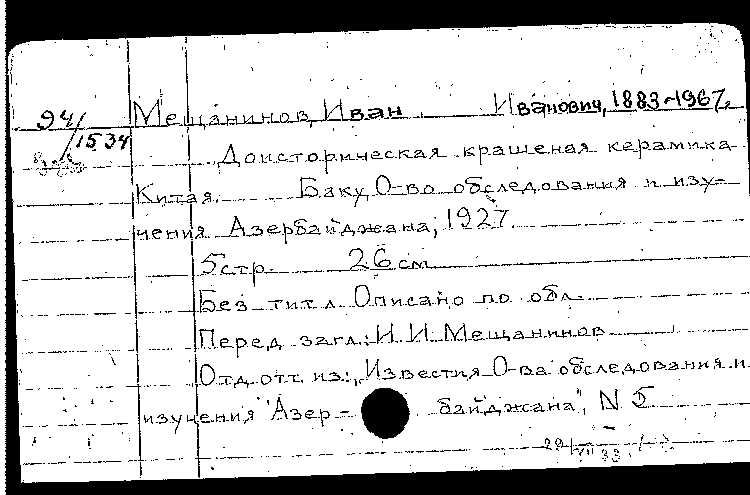 94/1534
Мещанинов, Иван Иванович, 1883-1967.
Доисторическая крашеная керамика
Китая. Баку, О-во обследования и изу-
чения Азербайджана, 1927.
5 стр. 26 см.
Без тит. л. Описано по обл.
Перед загл.: И. И. Мещанинов
Отд. отт. из: "Известия О-ва обследования и
изучения Азер- байджана", N 5
29/VII 33